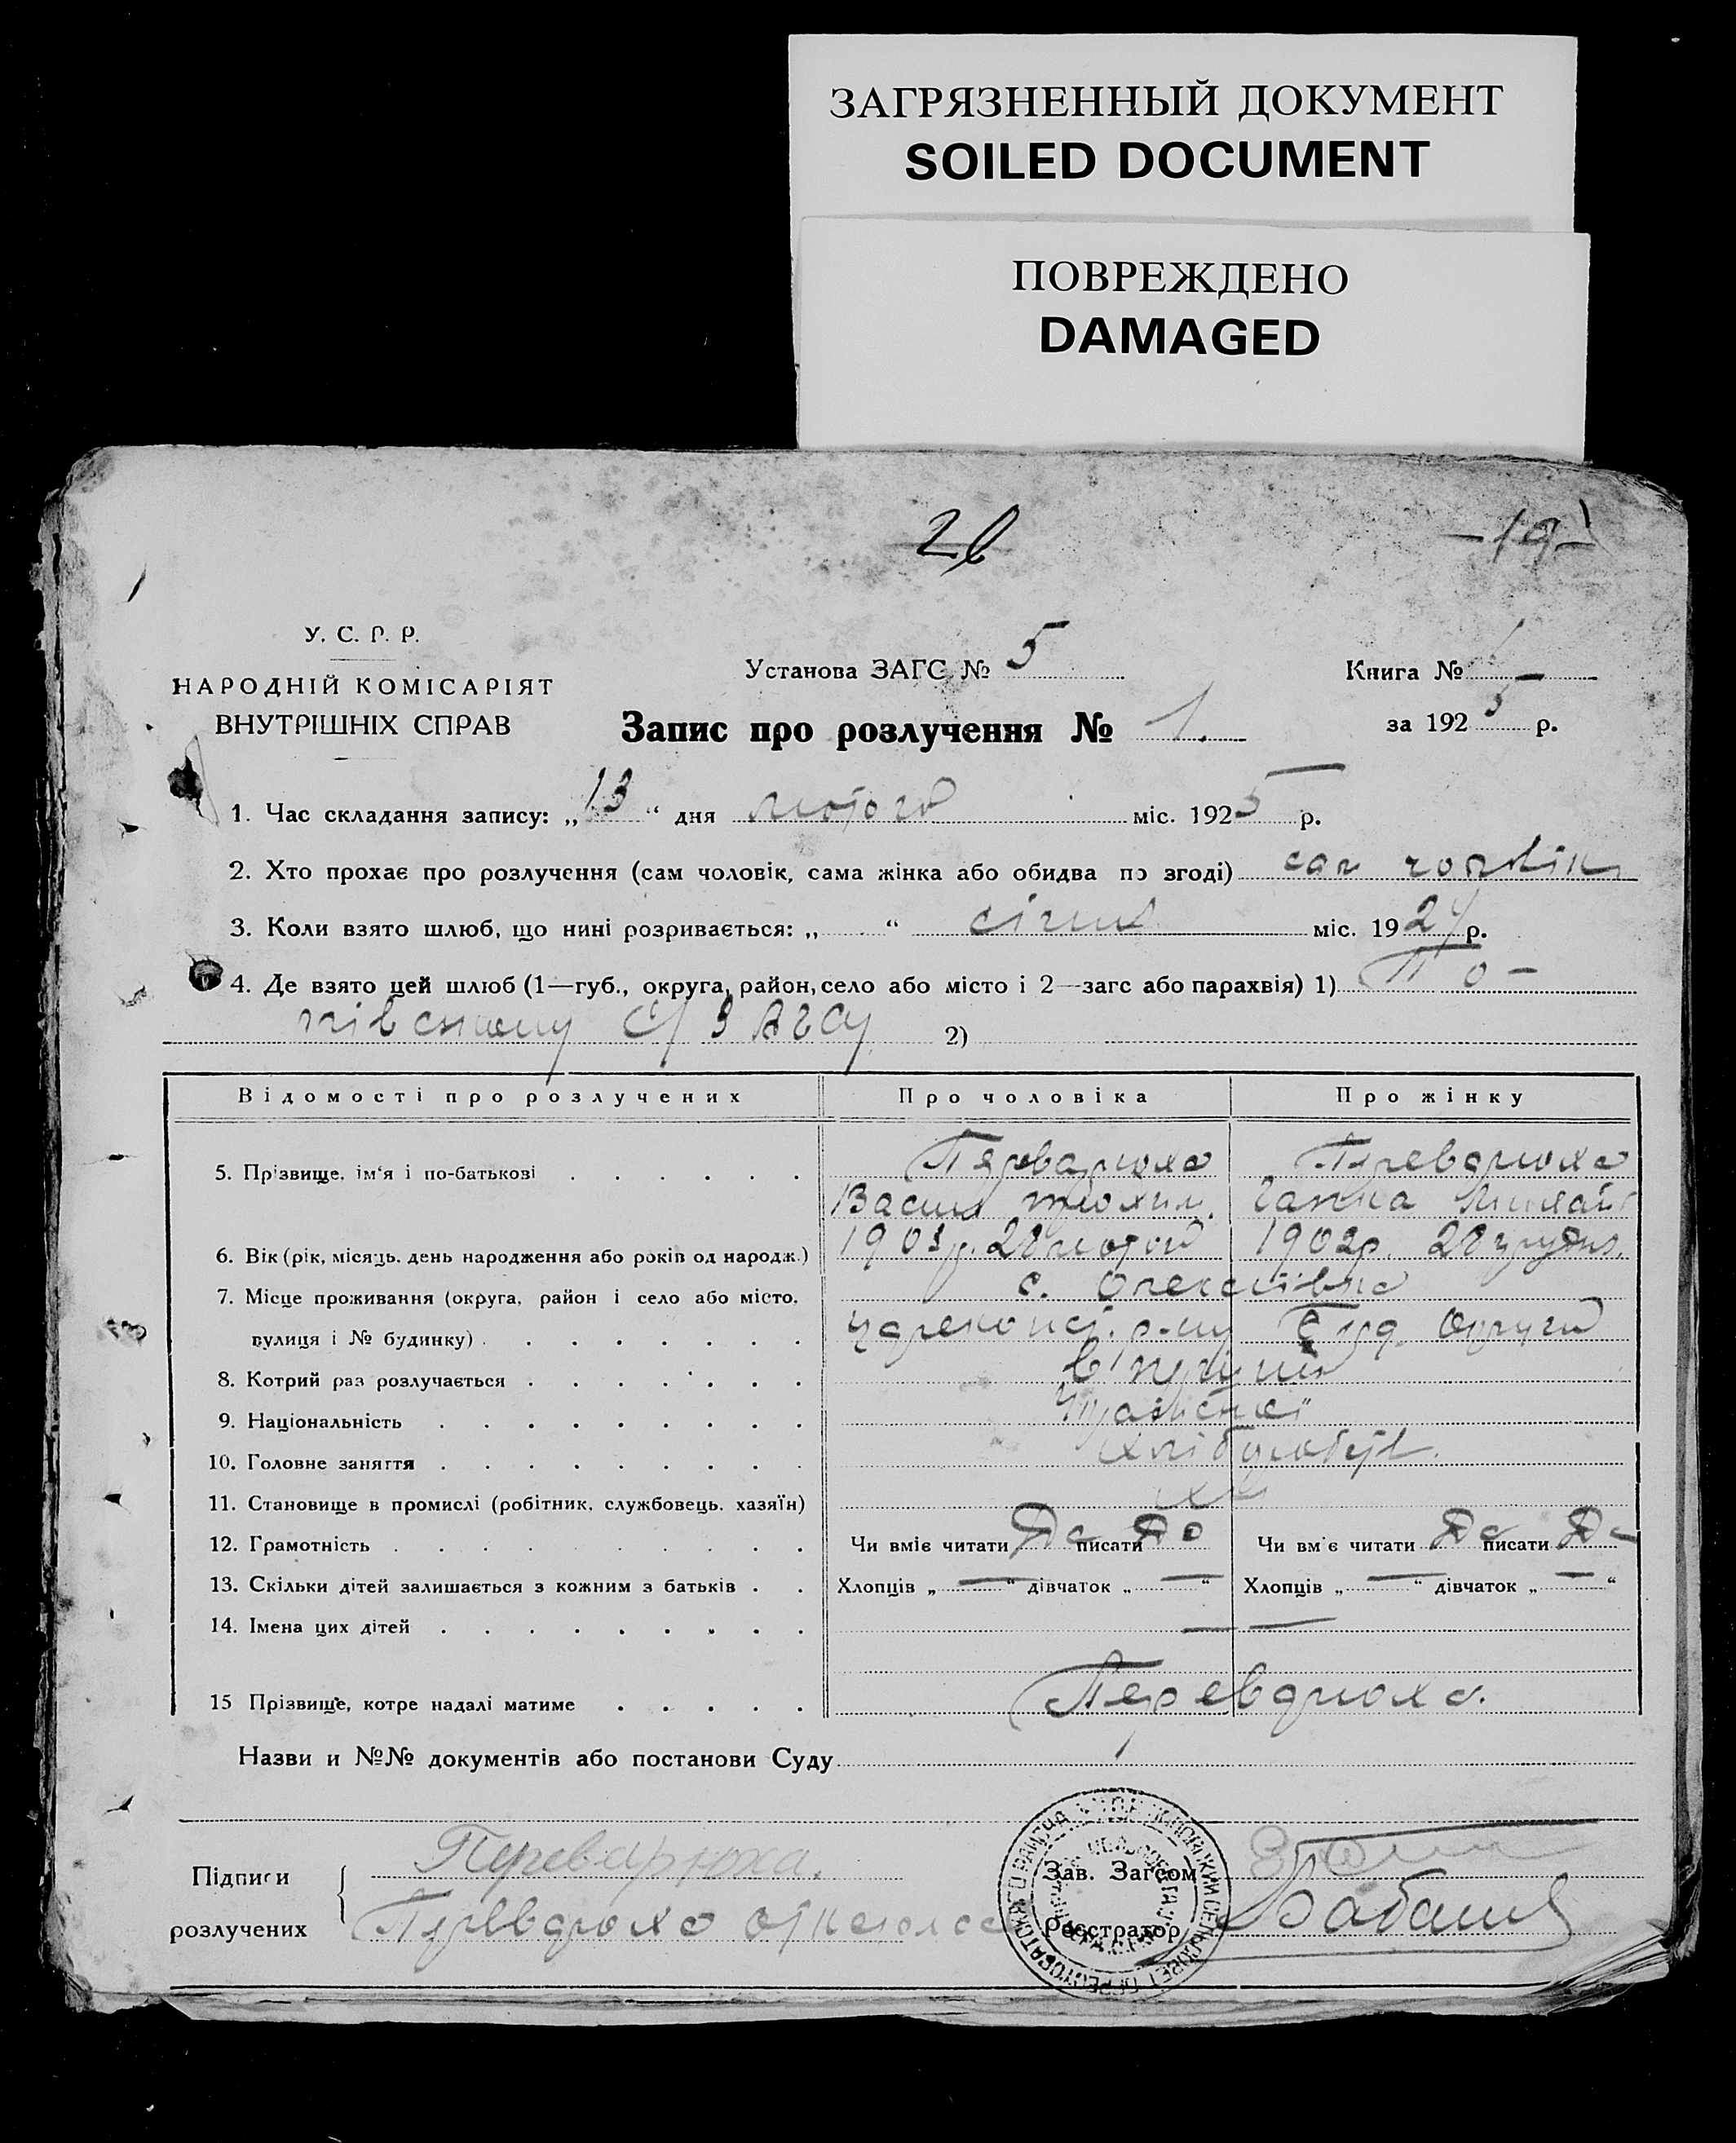 ЗАГРЯЗНЕННЫЙ ДОКУМЕНТ
SOILED DOCUMENT
ПОВРЕЖДЕНО
DAMAGED
-19-
У. С. Р. Р.
НАРОДНІЙ КОМІСАРІЯТ
ВНУТРІШНІХ СПРАВ
Установа ЗАГС № 5
Книга №
за 1925 р.
Запис про розлучення № 1.
1. Час складання запису: „13“ дня лютого міс. 1925 р.
2. Хто прохає про розлучення (сам чоловік, сама жінка або обидва по згоді) сам чоловік
3. Коли взято шлюб, що нині розривається: „ “ січня міс. 1924 р.
4. Де взято цей шлюб (1—губ., округа, район, село або місто і 2—загс або парахвія) 1)
2)
Відомості про розлучених
Про чоловіка
Про жінку
5. Прізвище, ім'я і по-батькові
Переварюха
Переварюха
Василь Тихон.
Ганна Михайл
6. Вік (рік, місяць, день народження або років од народж.)
1903 р. 28 лютого
1902 р. 28 грудня
7. Місце проживання (округа, район і село або місто, вулиця і № будинку)
с. Олексіївка
р-ну
Округи
8. Котрий раз розлучається
в перший
9. Національність
Українські
10. Головне заняття
хлібороб
11. Становище в промислі (робітник, службовець, хазяїн)
12. Грамотність
Чи вміє читати Да писати Да
Чи вміє читати Да писати Да
13. Скільки дітей залишається з кожним з батьків
Хлопців „—“ дівчаток „—“
Хлопців „—“ дівчаток „—“
14. Імена цих дітей
— —
15 Прізвище, котре надалі матиме
Переварюха.
Назви и №№ документів або постанови Суду
Підписи розлучених
Переварюха.
Переварюха
Зав. Загсом
Реєстратор